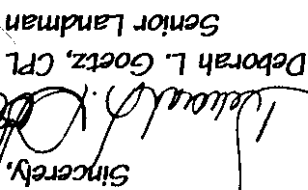 Sincerely,
Deborah L. Goetz, CPL
Senior Landman